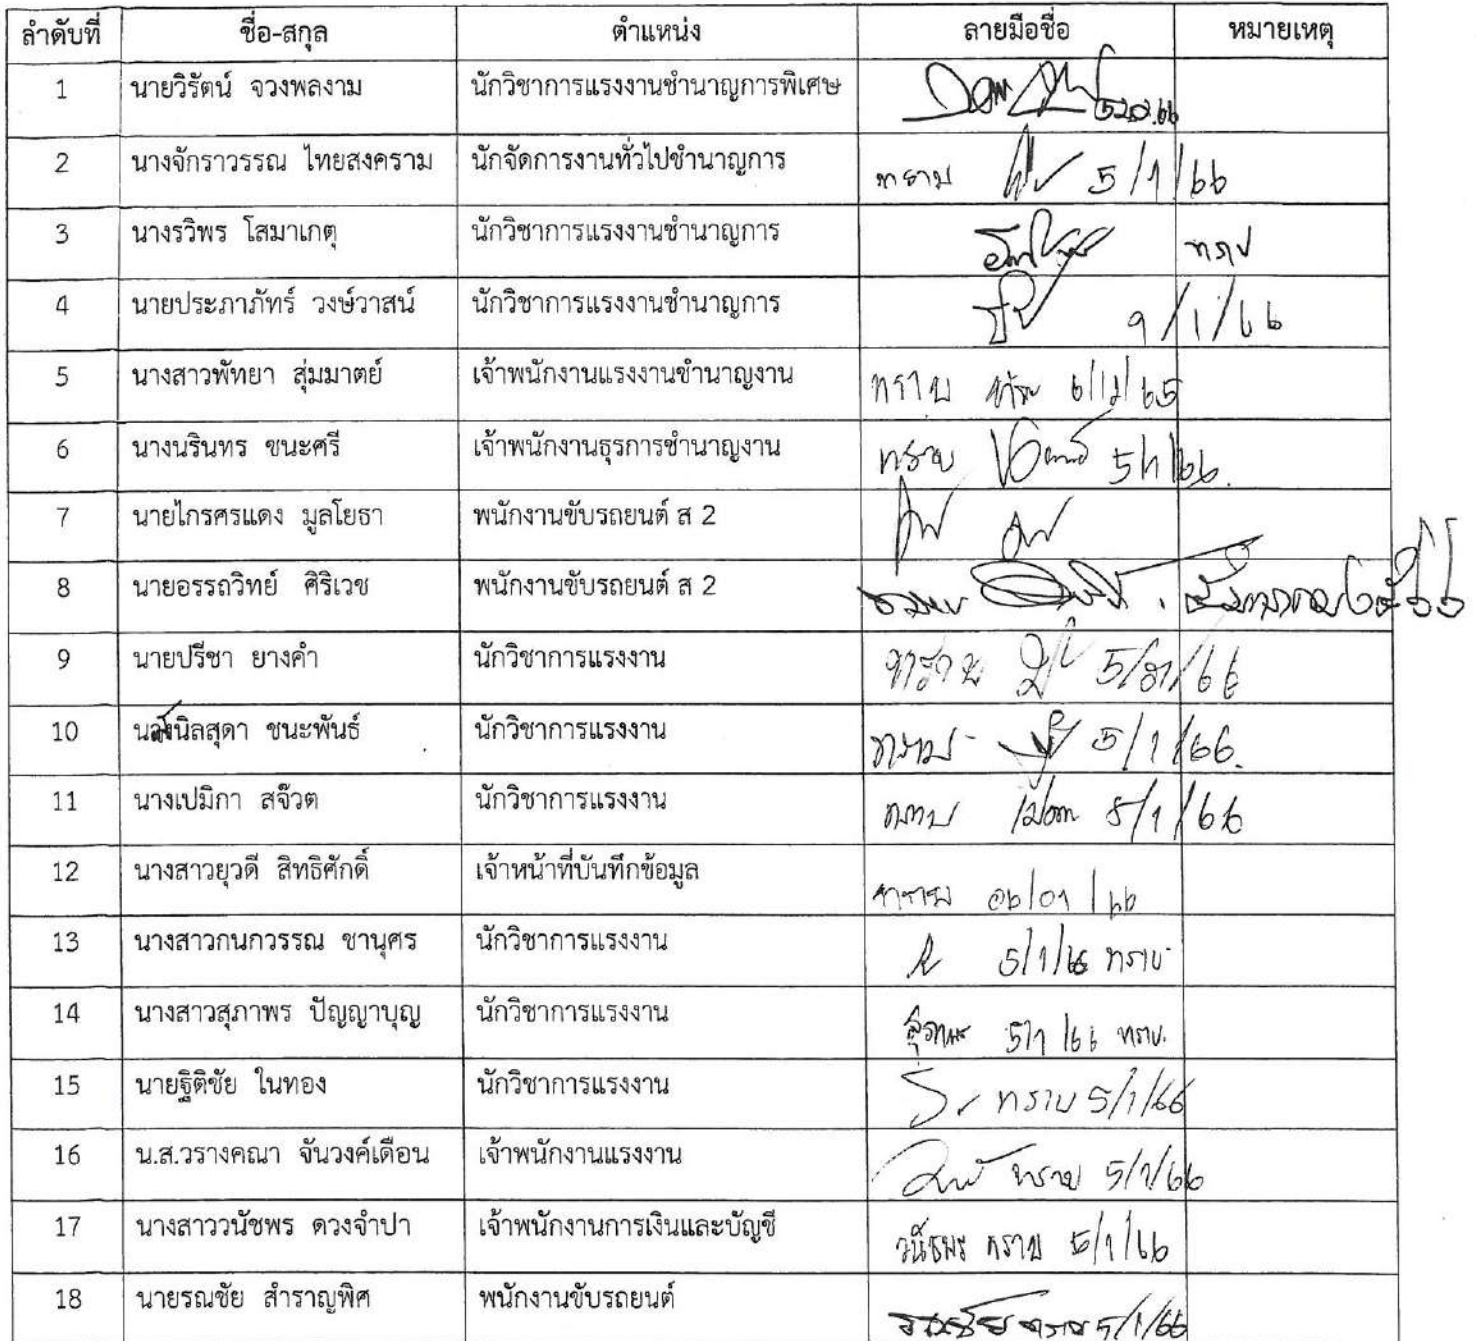 ลำดับที่ ชื่อ-สกุล ตำแหน่ง ลายมือชื่อ หมายเหตุ
1 นายวิรัตน์ จวงพลงาม นักวิชาการแรงงานชำนาญการพิเศษ
2 นางจักราวรรณ ไทยสงคราม นักจัดการงานทั่วไปชำนาญการ ทราบ 5/1/66
3 นางรวิพร โสมาเกตุ นักวิชาการแรงงานชำนาญการ ทราบ
4 นายประภาภัทร์ วงษ์วาสน์ นักวิชาการแรงงานชำนาญการ 9/1/66
5 นางสาวพัทยา สุ่มมาตย์ เจ้าพนักงานแรงงานชำนาญงาน ทราบ
6 นางนรินทร ชนะศรี เจ้าพนักงานธุรการชำนาญงาน ทราบ 5/1/66.
7 นายไกรศรแดง มูลโยธา พนักงานขับรถยนต์ ส 2
8 นายอรรถวิทย์ ศิริเวช พนักงานขับรถยนต์ ส 2
9 นายปรีชา ยางคำ นักวิชาการแรงงาน ทราบ
10 นิลสุดา ชนะพันธ์ นักวิชาการแรงงาน ทราบ 5/1/66.
11 นางเปมิกา สจ๊วต นักวิชาการแรงงาน ทราบ 5/1/66
12 นางสาวยุวดี สิทธิศักดิ์ เจ้าหน้าที่บันทึกข้อมูล ทราบ 06/01/66
13 นางสาวกนกวรรณ ชานุศร นักวิชาการแรงงาน 5/1/66 ทราบ
14 นางสาวสุภาพร ปัญญาบุญ นักวิชาการแรงงาน สุภาพร 5/1/66 ทราบ.
15 นายฐิติชัย ในทอง นักวิชาการแรงงาน ทราบ 5/1/66
16 น.ส.วรางคณา จันวงค์เดือน เจ้าพนักงานแรงงาน ทราบ 5/1/66
17 นางสาววนัชพร ดวงจำปา เจ้าพนักงานการเงินและบัญชี วนัชพร ทราบ 5/1/66
18 นายรณชัย สำราญพิศ พนักงานขับรถยนต์ รณชัย ทราบ 5/1/66